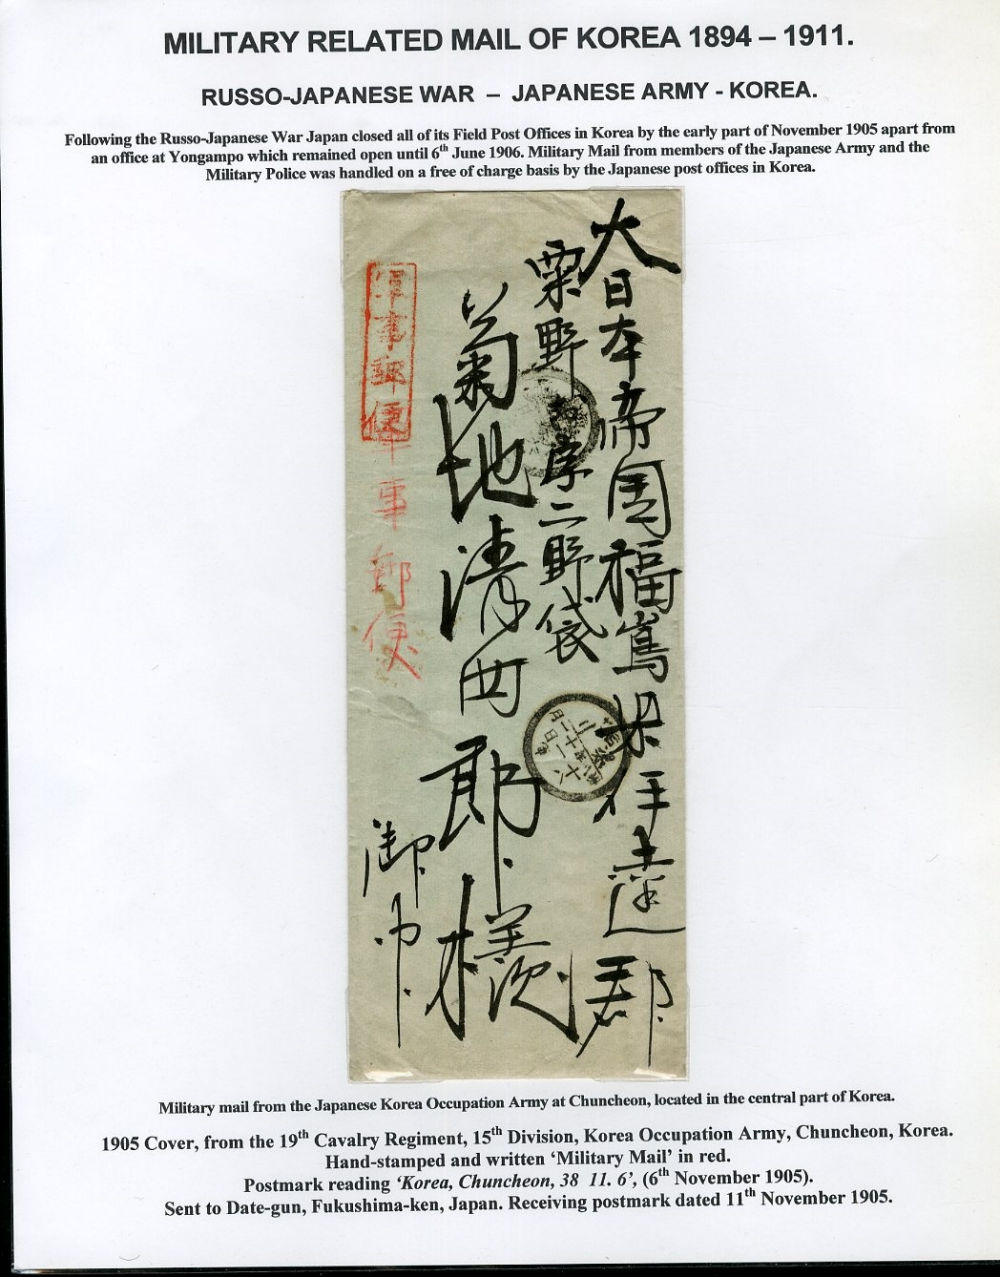 MILITARY RELATED MAIL OF KOREA 1894 – 1911.
RUSSO-JAPANESE WAR – JAPANESE ARMY - KOREA.
Following the Russo-Japanese War Japan closed all of its Field Post Offices in Korea by the early part of November 1905 apart from
an office at Yongampo which remained open until 6th June 1906. Military Mail from members of the Japanese Army and the
Military Police was handled on a free of charge basis by the Japanese post offices in Korea.
大日本帝国福嶌県伊達郡
粟野村字二野袋
菊地清四郎様
御中
軍事郵便
軍事郵便
Military mail from the Japanese Korea Occupation Army at Chuncheon, located in the central part of Korea.
1905 Cover, from the 19th Cavalry Regiment, 15th Division, Korea Occupation Army, Chuncheon, Korea.
Hand-stamped and written ‘Military Mail’ in red.
Postmark reading ‘Korea, Chuncheon, 38 11. 6’, (6th November 1905).
Sent to Date-gun, Fukushima-ken, Japan. Receiving postmark dated 11th November 1905.